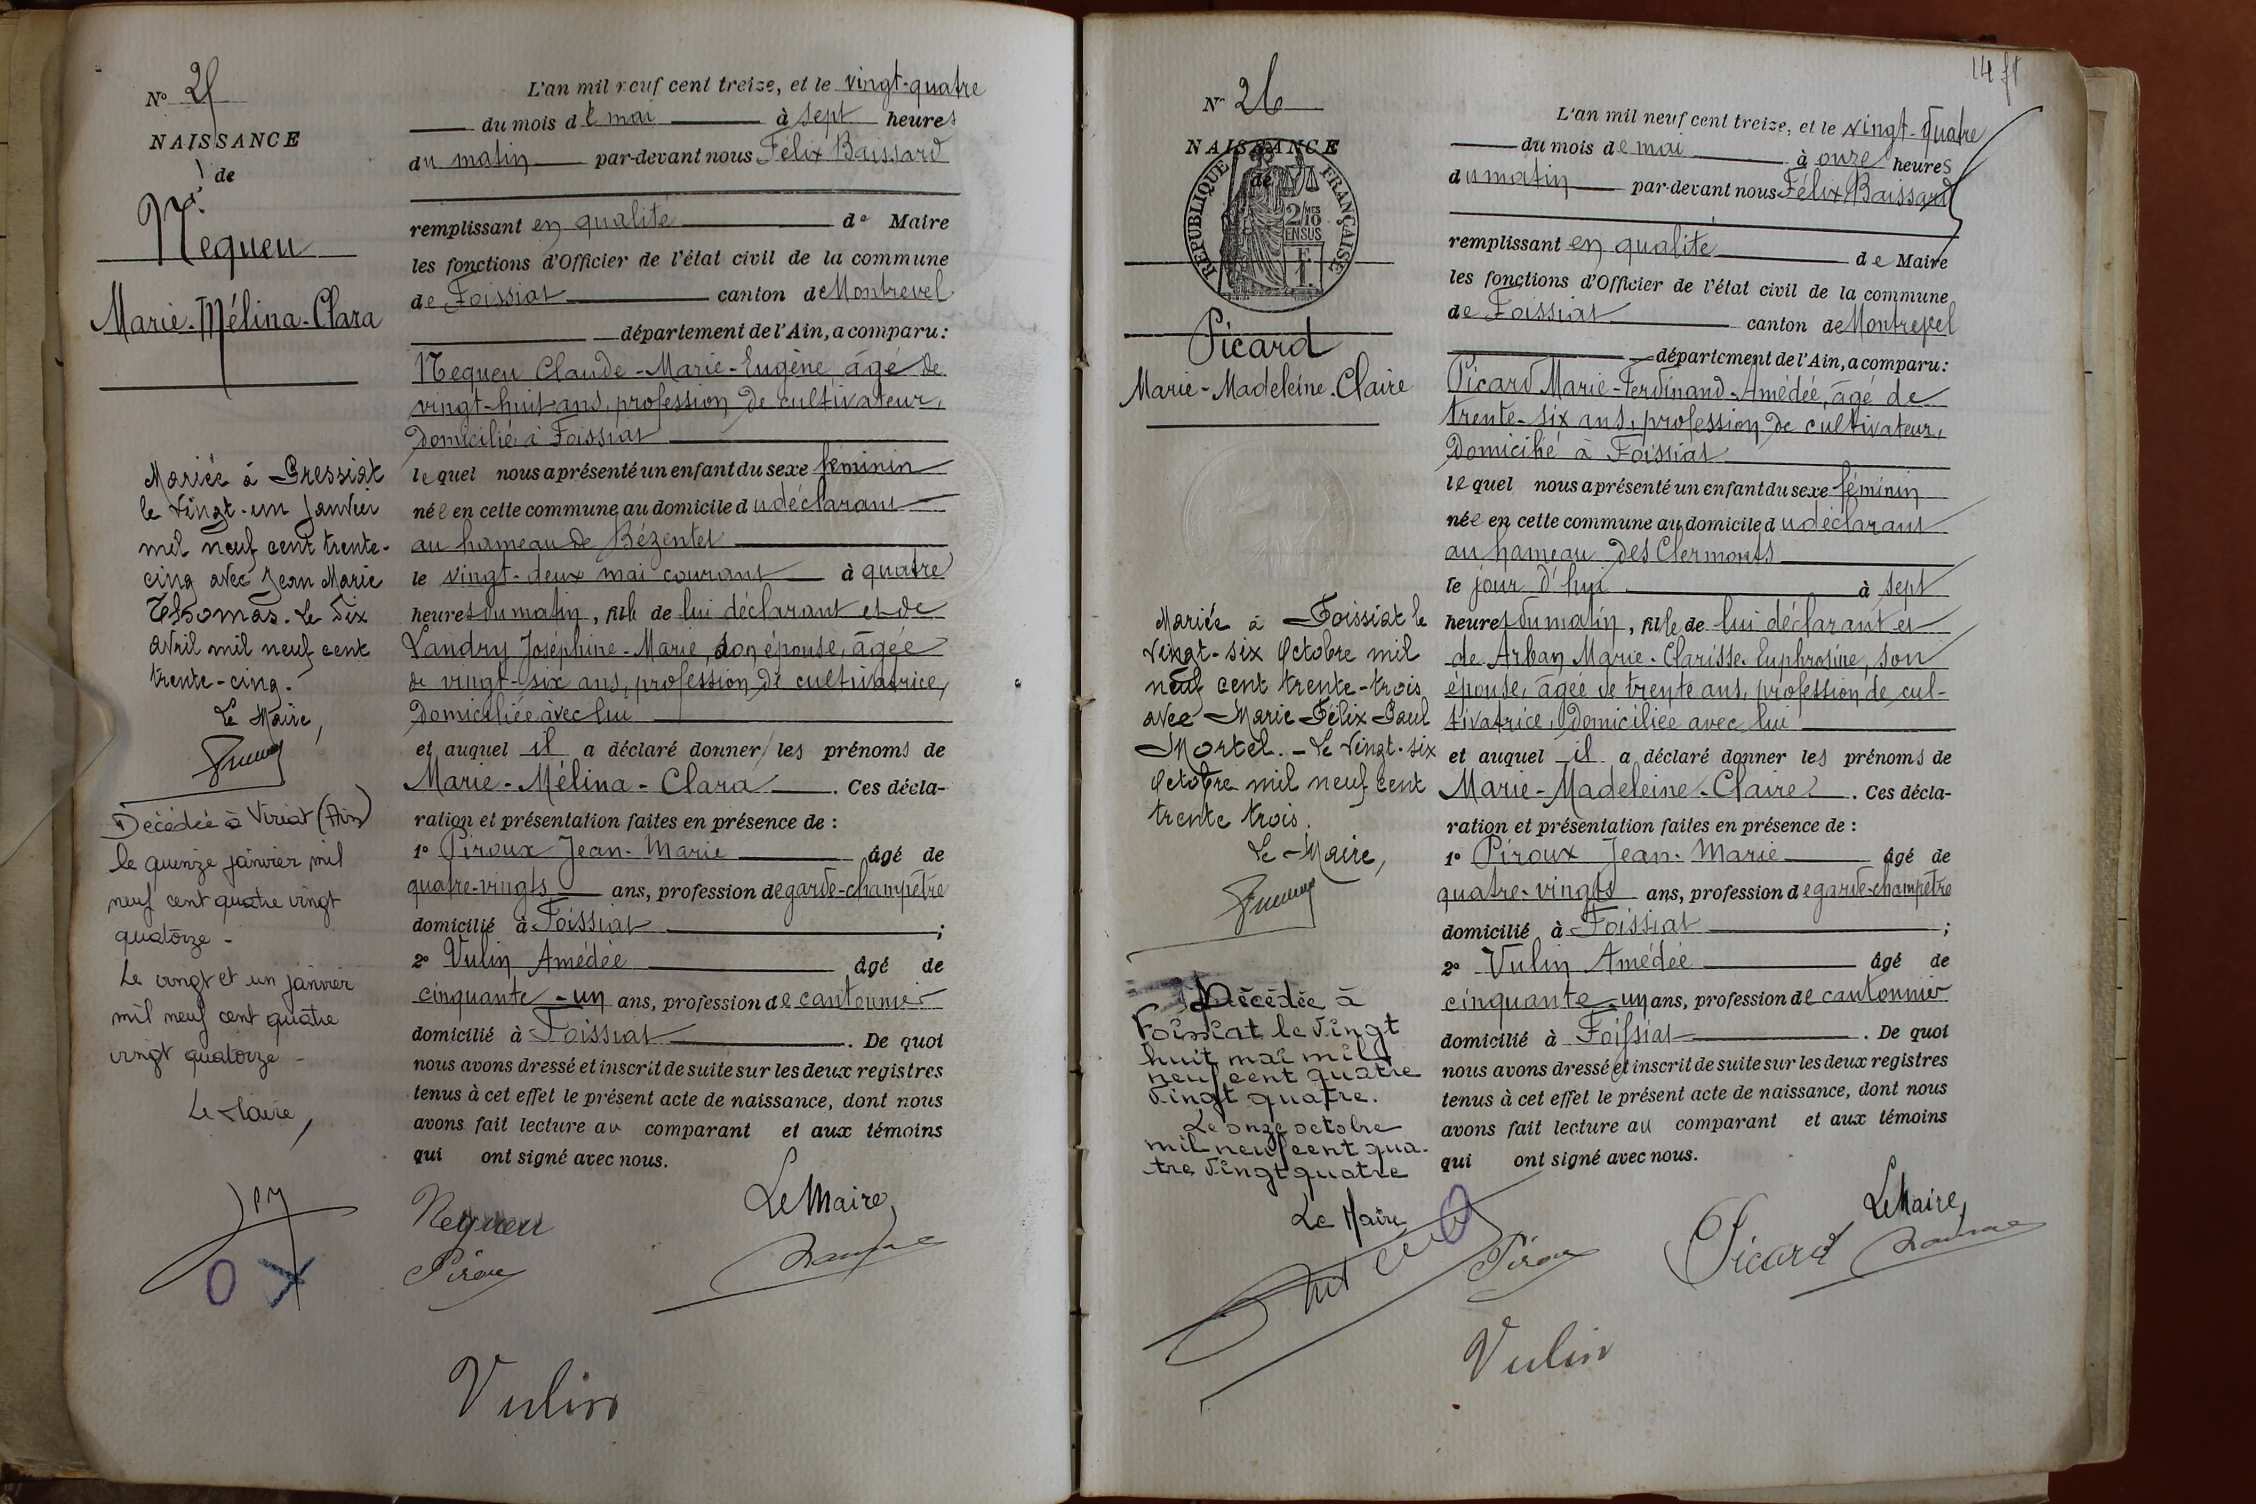 Nº 25
NAISSANCE
de
Nequeu
Marie-Mélina-Clara
Mariée à Pressiat
le vingt-un janvier
mil neuf cent trente-
cinq avec Jean Marie
Thomas. Le dix
avril mil neuf cent
trente-cinq.
Le Maire,
Décédée à Viriat (Ain)
le quinze janvier mil
neuf cent quatre vingt
quatorze -
Le vingt et un janvier
mil neuf cent quatre
vingt quatorze -
Le Maire,
L'an mil neuf cent treize, et le vingt-quatre
du mois de mai à sept heures
du matin par-devant nous Félix Baissard
remplissant en qualité de Maire
les fonctions d'Officier de l'état civil de la commune
de Foissiat canton de Montrevel
département de l'Ain, a comparu:
Nequeu Claude-Marie-Eugène âgé de
vingt-huit ans, profession de cultivateur,
domicilié à Foissiat
lequel nous a présenté un enfant du sexe féminin
née en cette commune au domicile du déclarant
au hameau de Bézentet
le vingt-deux mai courant à quatre
heures du matin, fille de lui déclarant et de
Landry Joséphine-Marie, son épouse, âgée
de vingt-six ans, profession de cultivatrice,
domiciliée avec lui
et auquel il a déclaré donner les prénoms de
Marie-Mélina-Clara. Ces décla-
ration et présentation faites en présence de :
1º Piroux Jean-Marie âgé de
quatre-vingts ans, profession de garde-champêtre
domicilié à Foissiat ;
2º Vulin Amédée âgé de
cinquante-un ans, profession de cantonnier
domicilié à Foissiat. De quoi
nous avons dressé et inscrit de suite sur les deux registres
tenus à cet effet le présent acte de naissance, dont nous
avons fait lecture au comparant et aux témoins
qui ont signé avec nous.
Nequeu
Le Maire,
Piroux
Vulin
14
Nº 26
NAISSANCE
de
RÉPUBLIQUE FRANÇAISE
2/10MES
EN SUS
Picard
Marie-Madeleine-Claire
Mariée à Foissiat le
vingt-six Octobre mil
neuf cent trente-trois
avec Marie Félix Paul
Mortel. - Le vingt-six
Octobre mil neuf cent
trente trois.
Le Maire,
Décédée à
Foissiat le vingt
huit mai mil
neuf cent quatre
vingt quatre.
Le onze octobre
mil neuf cent qua-
tre vingt quatre
Le Maire
L'an mil neuf cent treize, et le vingt-quatre
du mois de mai à onze heures
du matin par-devant nous Félix Baissard
remplissant en qualité de Maire
les fonctions d'Officier de l'état civil de la commune
de Foissiat canton de Montrevel
département de l'Ain, a comparu:
Picard Marie-Ferdinand-Amédée, âgé de
trente-six ans, profession de cultivateur,
domicilié à Foissiat
lequel nous a présenté un enfant du sexe féminin
née en cette commune au domicile du déclarant
au hameau des Clermonts
le jour d'hui à sept
heures du matin, fille de lui déclarant et
de Arban Marie-Clarisse-Euphrosine, son
épouse, âgée de trente ans, profession de cul-
tivatrice, domiciliée avec lui
et auquel il a déclaré donner les prénoms de
Marie-Madeleine-Claire. Ces décla-
ration et présentation faites en présence de :
1º Piroux Jean-Marie âgé de
quatre-vingts ans, profession de garde-champêtre
domicilié à Foissiat ;
2º Vulin Amédée âgé de
cinquante-un ans, profession de cantonnier
domicilié à Foissiat. De quoi
nous avons dressé et inscrit de suite sur les deux registres
tenus à cet effet le présent acte de naissance, dont nous
avons fait lecture au comparant et aux témoins
qui ont signé avec nous.
Le Maire,
Picard
Piroux
Vulin